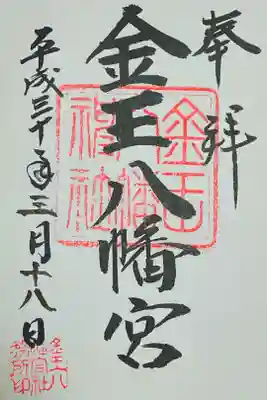 奉拝
金王八幡宮
平成三十年三月十八日
金王八幡神社
金王八
幡宮社
務所印